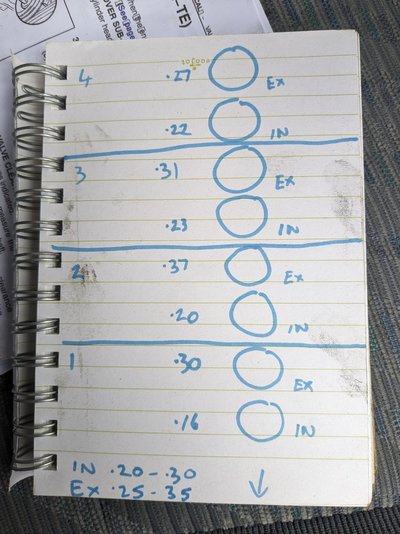 4 .27 Ex
.22 IN
3 .31 Ex
.23 IN
2 .37 Ex
.20 IN
1 .30 Ex
.16 IN
IN .20 - .30
Ex .25 - 35